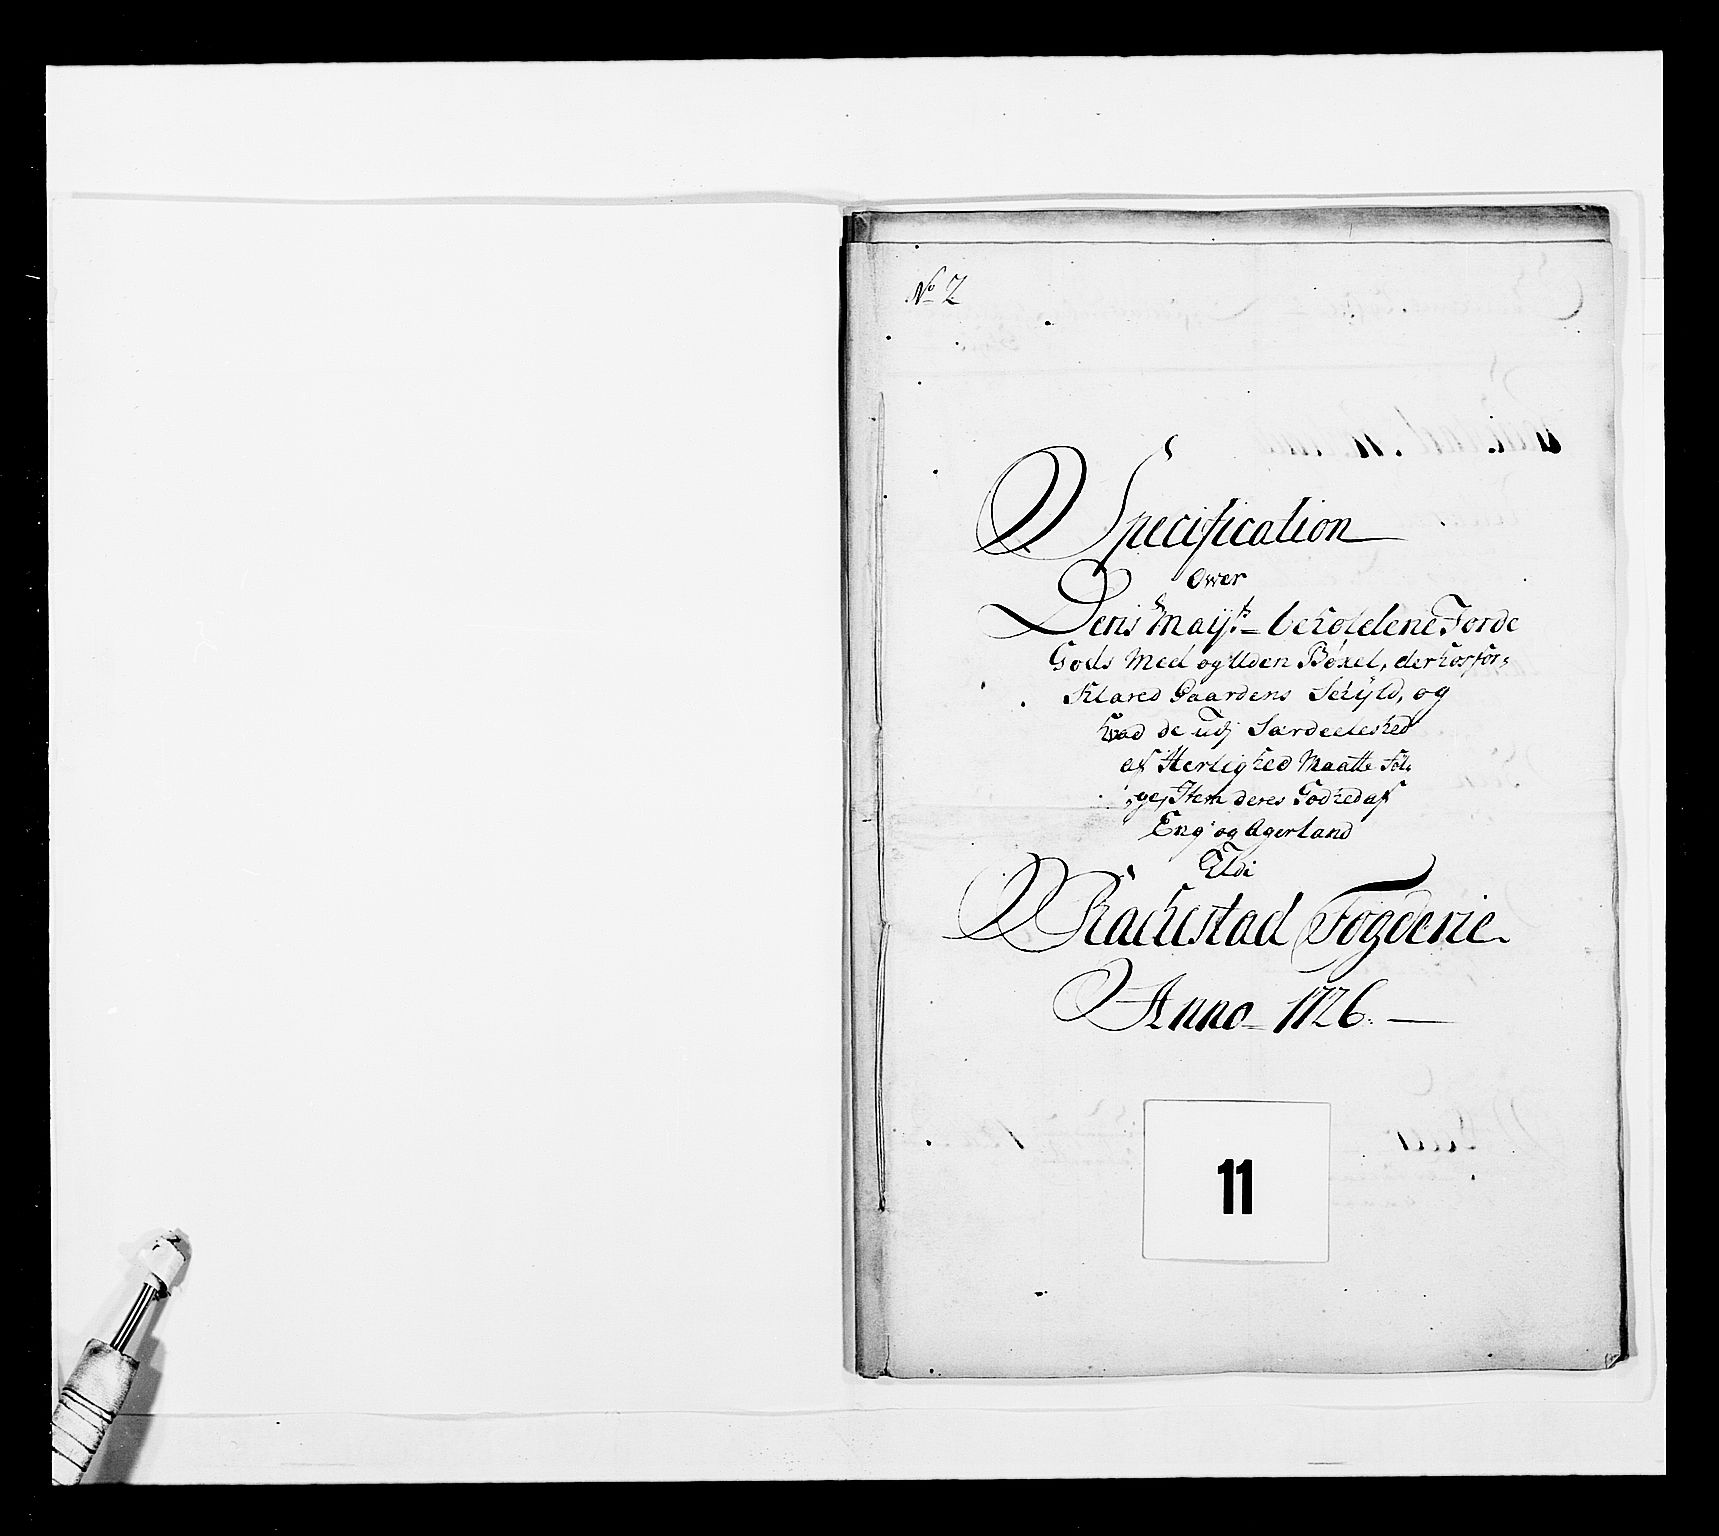 No 2
Specification
Over
Deris Mayts. beholdene Jorde
Gods Med og Uden Böxel, derhos for,
Klared Gaardens Schÿld, og
hvad de udj Særdeeleshed
af Herlighed Maatte föl,
ge, Item deres Godhed af
Eng og Agerland
Udi
Rachestad Fogderie.
Anno 1726.
11